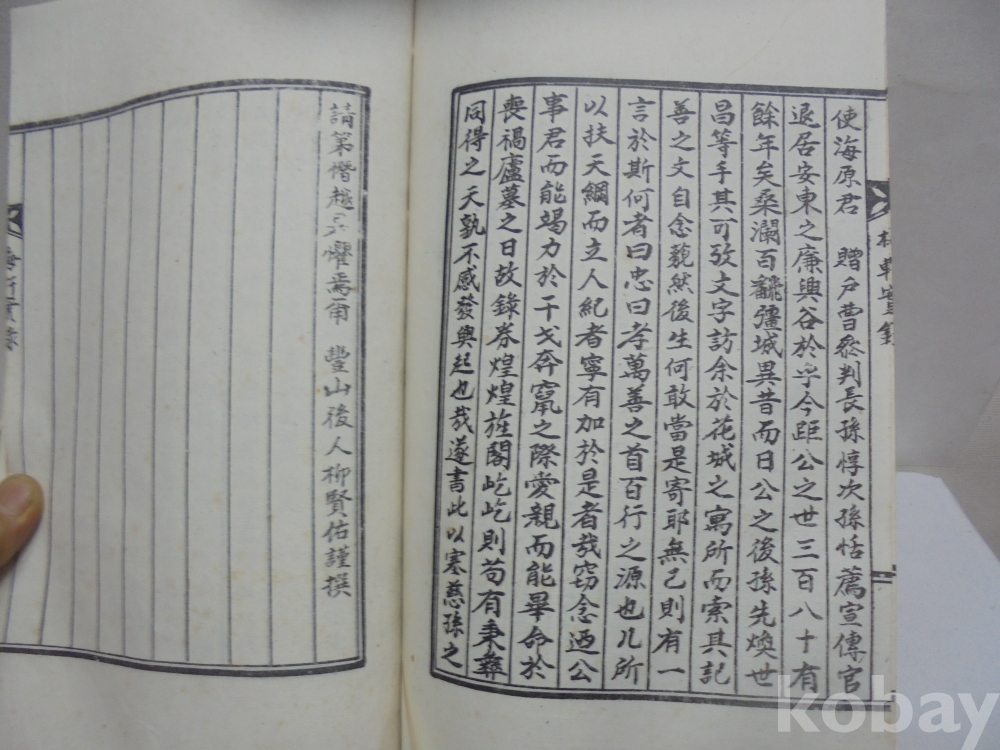 使海原君 贈戶曹參判長孫惇次孫恬薦宣傳官
退居安東之廉興谷於乎今距公之世三百八十有
餘年矣桑瀾百飜疆城異昔而日公之後孫先煥世
昌等手其可攷文字訪余於花城之寓所而索其記
善之文自念藐然後生何敢當是寄耶無已則有一
言於斯何者曰忠曰孝萬善之首百行之源也凡所
以扶天綱而立人紀者寧有加於是者哉竊念迺公
事君而能竭力於干戈奔竄之際愛親而能畢命於
喪禍廬墓之日故錄券煌煌旌閣屹屹則苟有秉彝
同得之天孰不感發興起也哉遂書此以塞慈孫之
請第僭越是懼焉爾 豐山後人柳賢佑謹撰
軒實錄
實錄
kobay